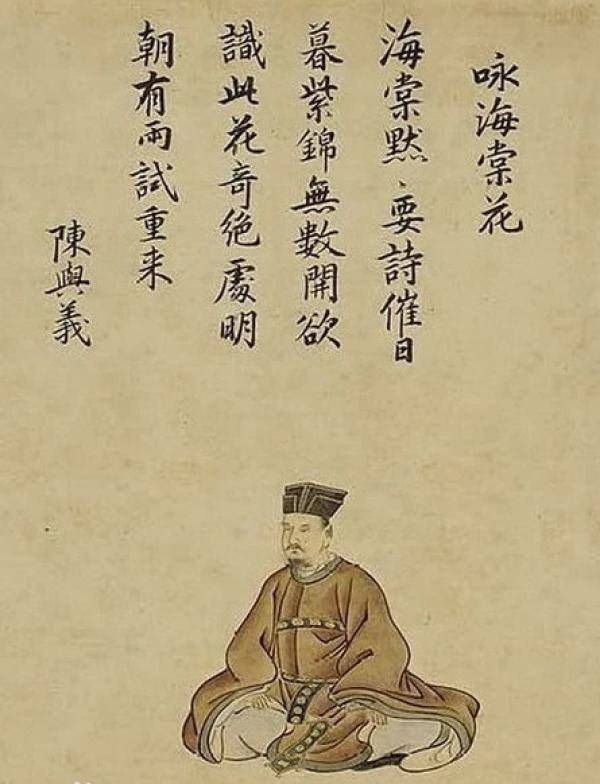 咏海棠花
海棠默、要詩催日
暮紫錦無數開欲
識此花奇絶處明
朝有雨試重来
陳與義